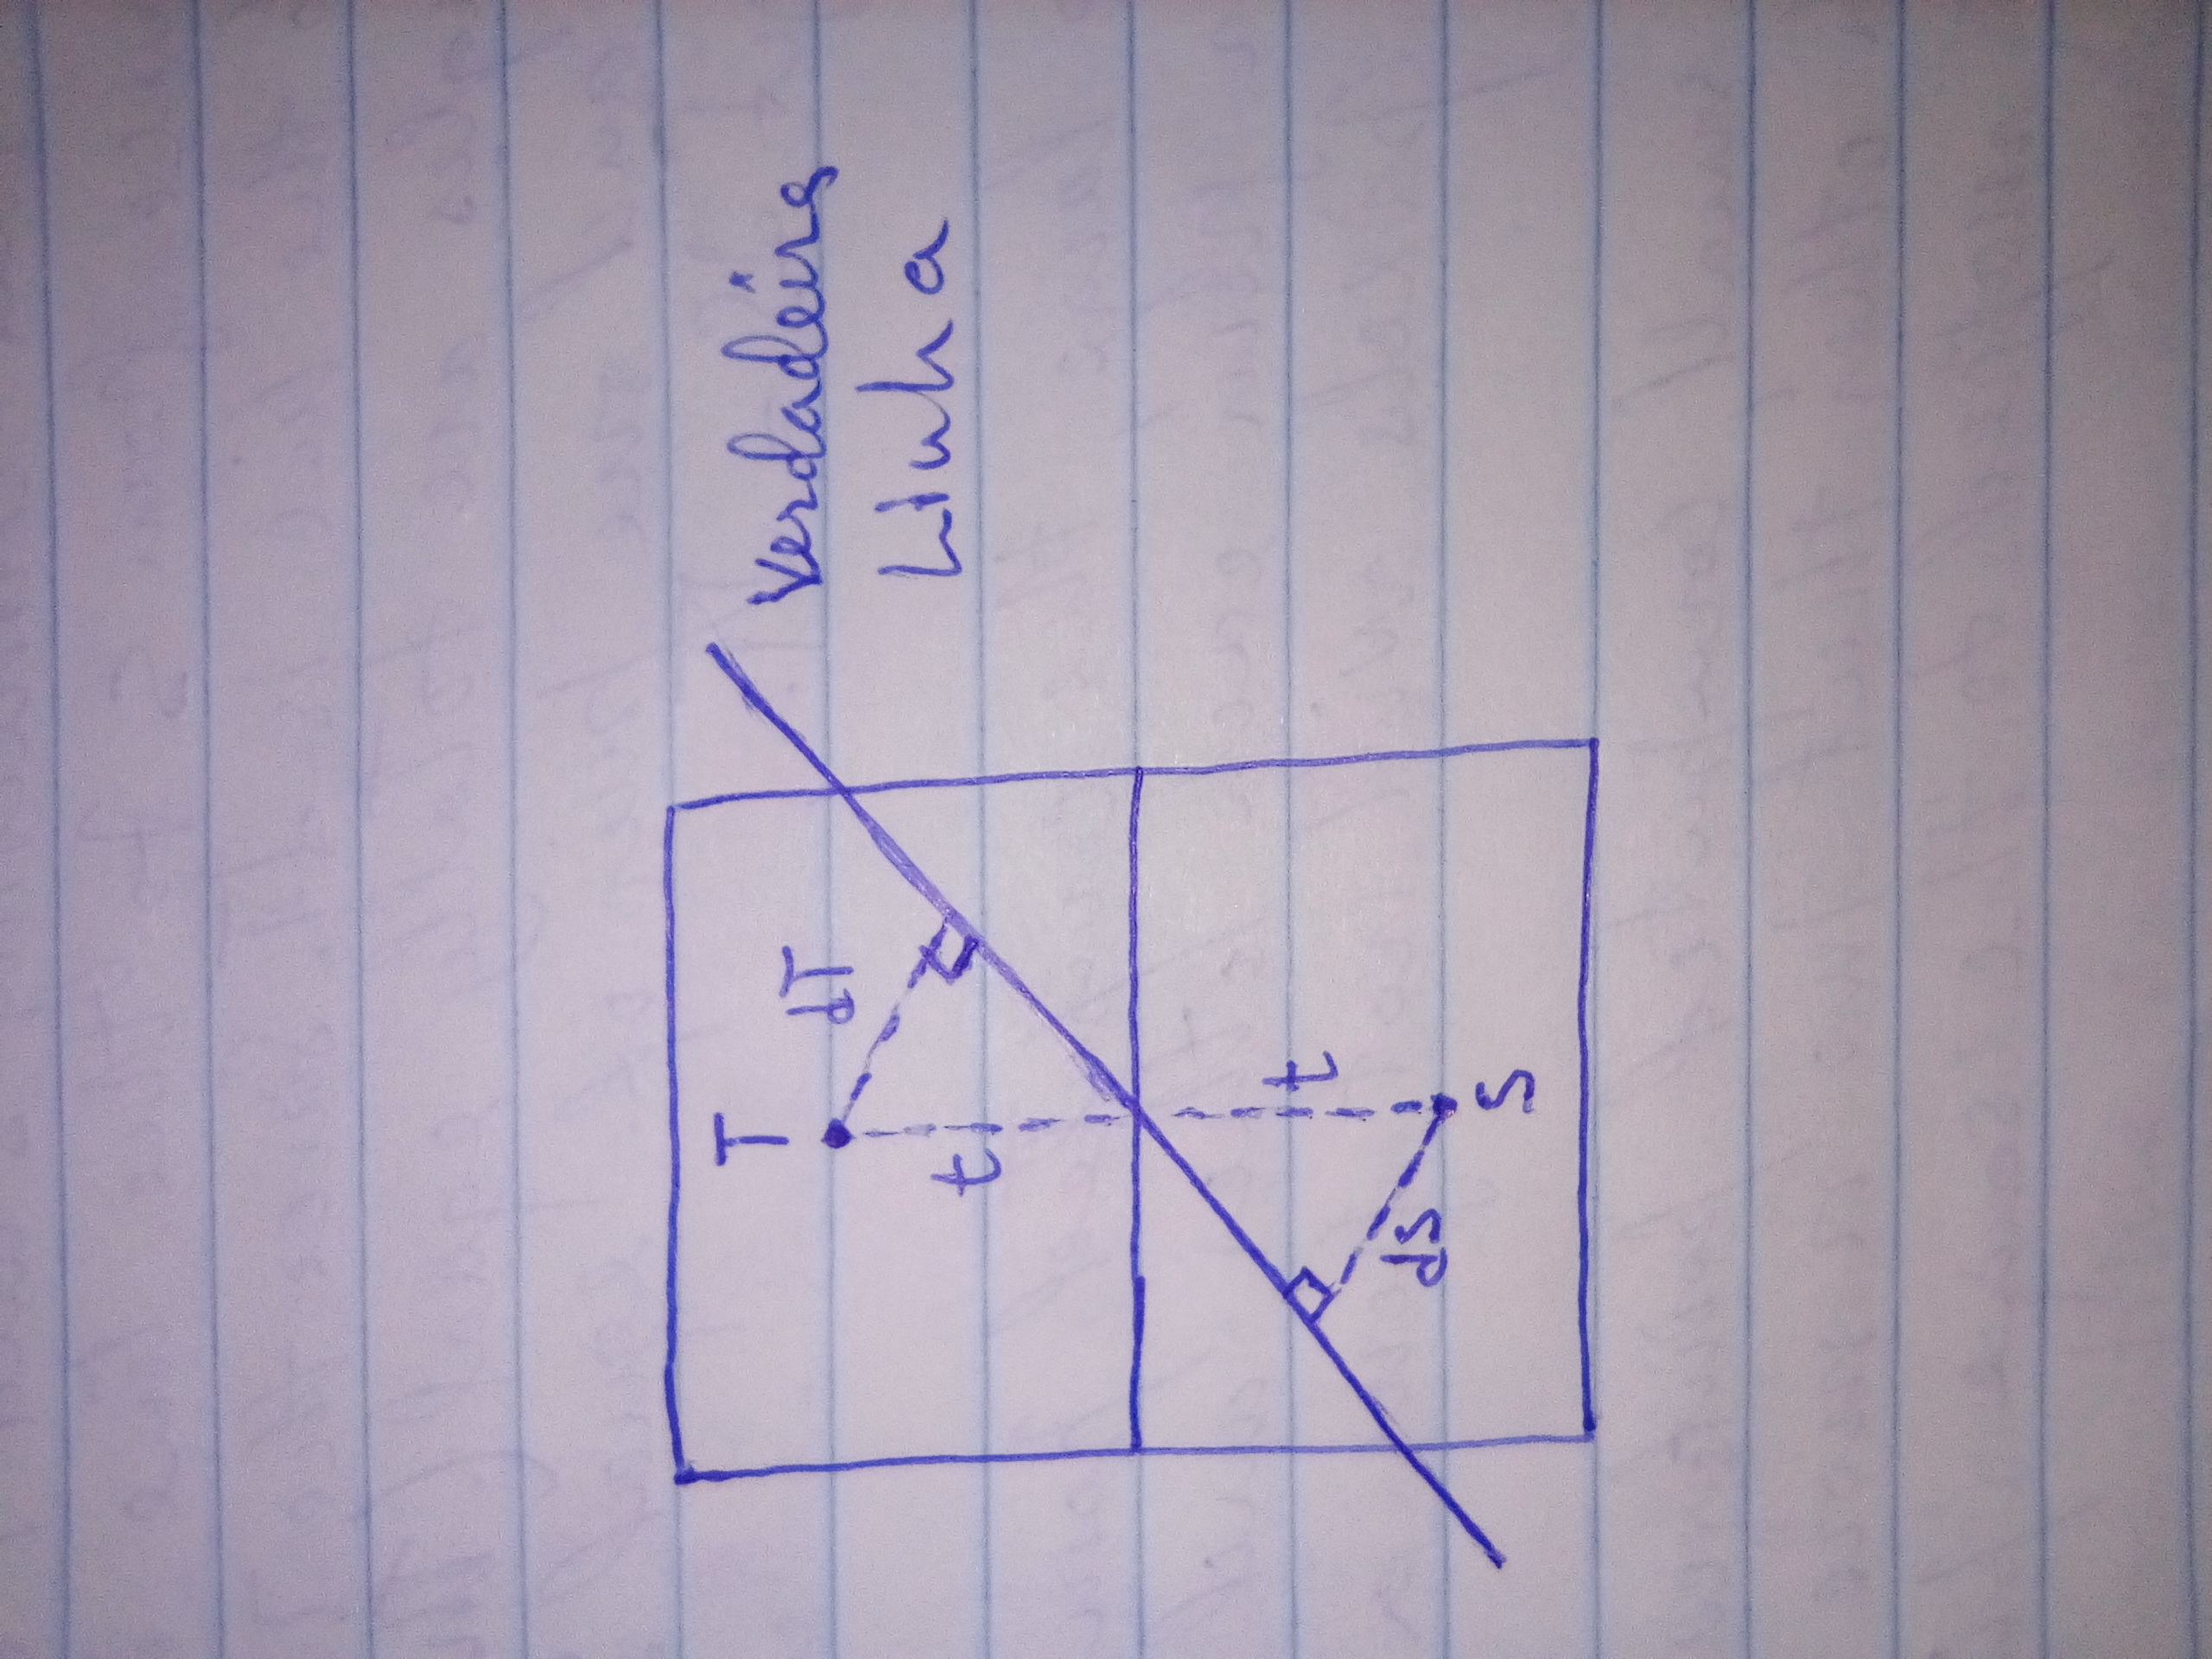 Verdadeira
Linha
T
dT
t
t
S
dS